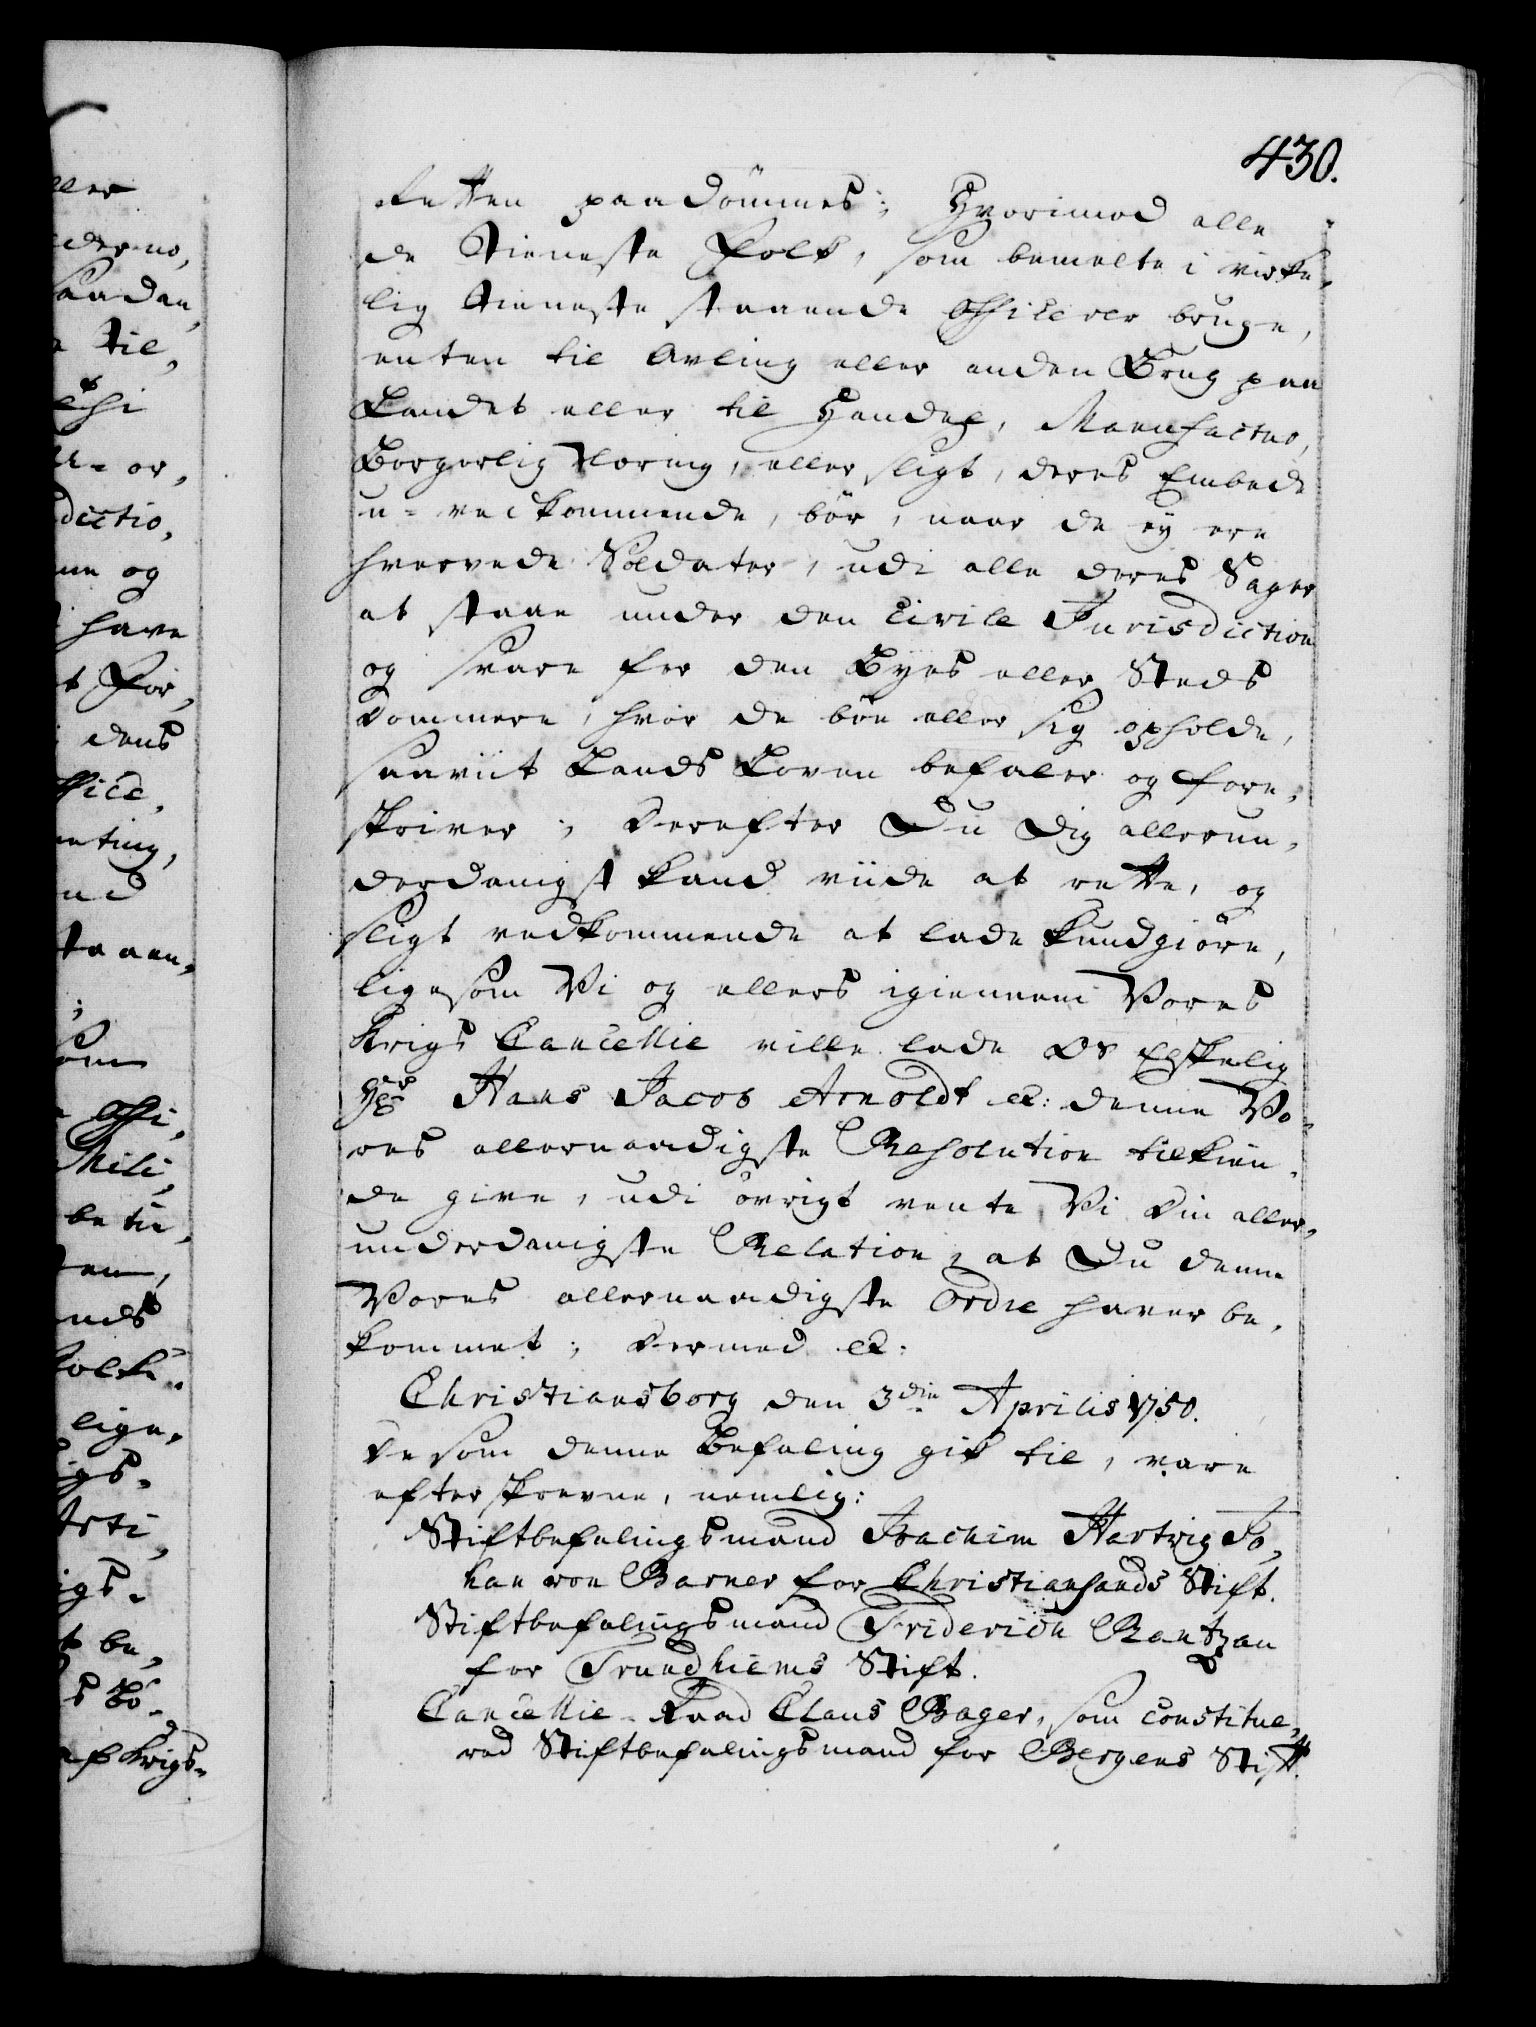 430.
Retten paadömmes; Hvorimod alle
de Tieneste Folk, som bemelte i virke,
lig Tieneste staaende Officerer bruge,
enten til Avling eller anden Brug paa
Landet eller til Handel, Manufactur,
Borgerlig Næring, eller sligt, deres Embede
u-vedkommende, bör, naar de ej ere
hvervede Soldater, udi alle deres Sager
at staae under den Civile Jurisdiction
og svare for den Byes eller Steds
Dommere, hvor de böe eller sig opholde,
saaviit Lands Loven befaler og fore,
skriver; Derefter Du Dig allerun,
derdanigst kand viide at rette, og
sligt vedkommende at lade kundgiöre,
ligesom Vi og ellers igiennem Vores
Krigs Cancellie ville lade Os Elskelig
Hr Hans Jacob Arnoldt etc: denne Vo-
res allernaadigste Resolution tilkien,
de give, udi övrigt vente Vi Din aller,
underdanigste Relation, at Du denne
Vores allernaadigste Ordre haver be,
kommet; Dermed etc:
Christiansborg den 3die Aprilis 1750.
De som denne Befaling gik til, vare
efterskrevne, nemlig:
Stiftbefalingsmand Joachim Hartvig Jo,
han von Barner for Christiansands Stift.
Stiftbefalingsmand Friderich Rantzau
for Trundhiems Stift.
Cancellie-Raad Claus Bager, som constitue,
red Stiftbefalingsmand for Bergens Stift.
ller
derne,
saadan,
til,
or,
dictio,
og
have
t For,
dens
ffice,
nd
staaen,
som
Offi,
Mili,
be
nds
Folk
lige,
igs-
igs-
t be,
af Krigs-